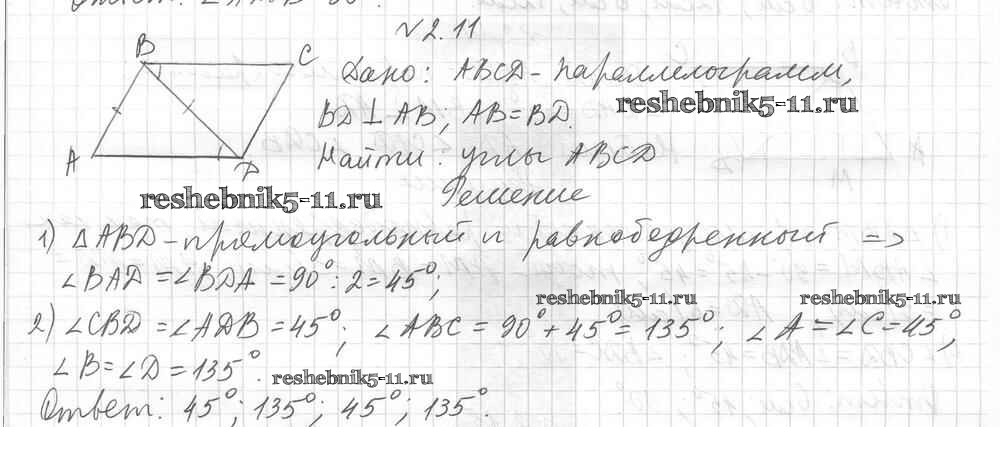 Ответ:
№2.11
B
C
Дано: ABCD - параллелограмм,
reshebnik5-11.ru
BD ⊥ AB; AB = BD.
A
D
Найти: углы ABCD
reshebnik5-11.ru
Решение
1) △ABD - прямоугольный и равнобедренный =>
∠BAD = ∠BDA = 90° : 2 = 45°;
reshebnik5-11.ru
reshebnik5-11.ru
2) ∠CBD = ∠ADB = 45°; ∠ABC = 90° + 45° = 135°; ∠A = ∠C = 45°,
∠B = ∠D = 135°.
reshebnik5-11.ru
Ответ: 45°; 135°; 45°; 135°.